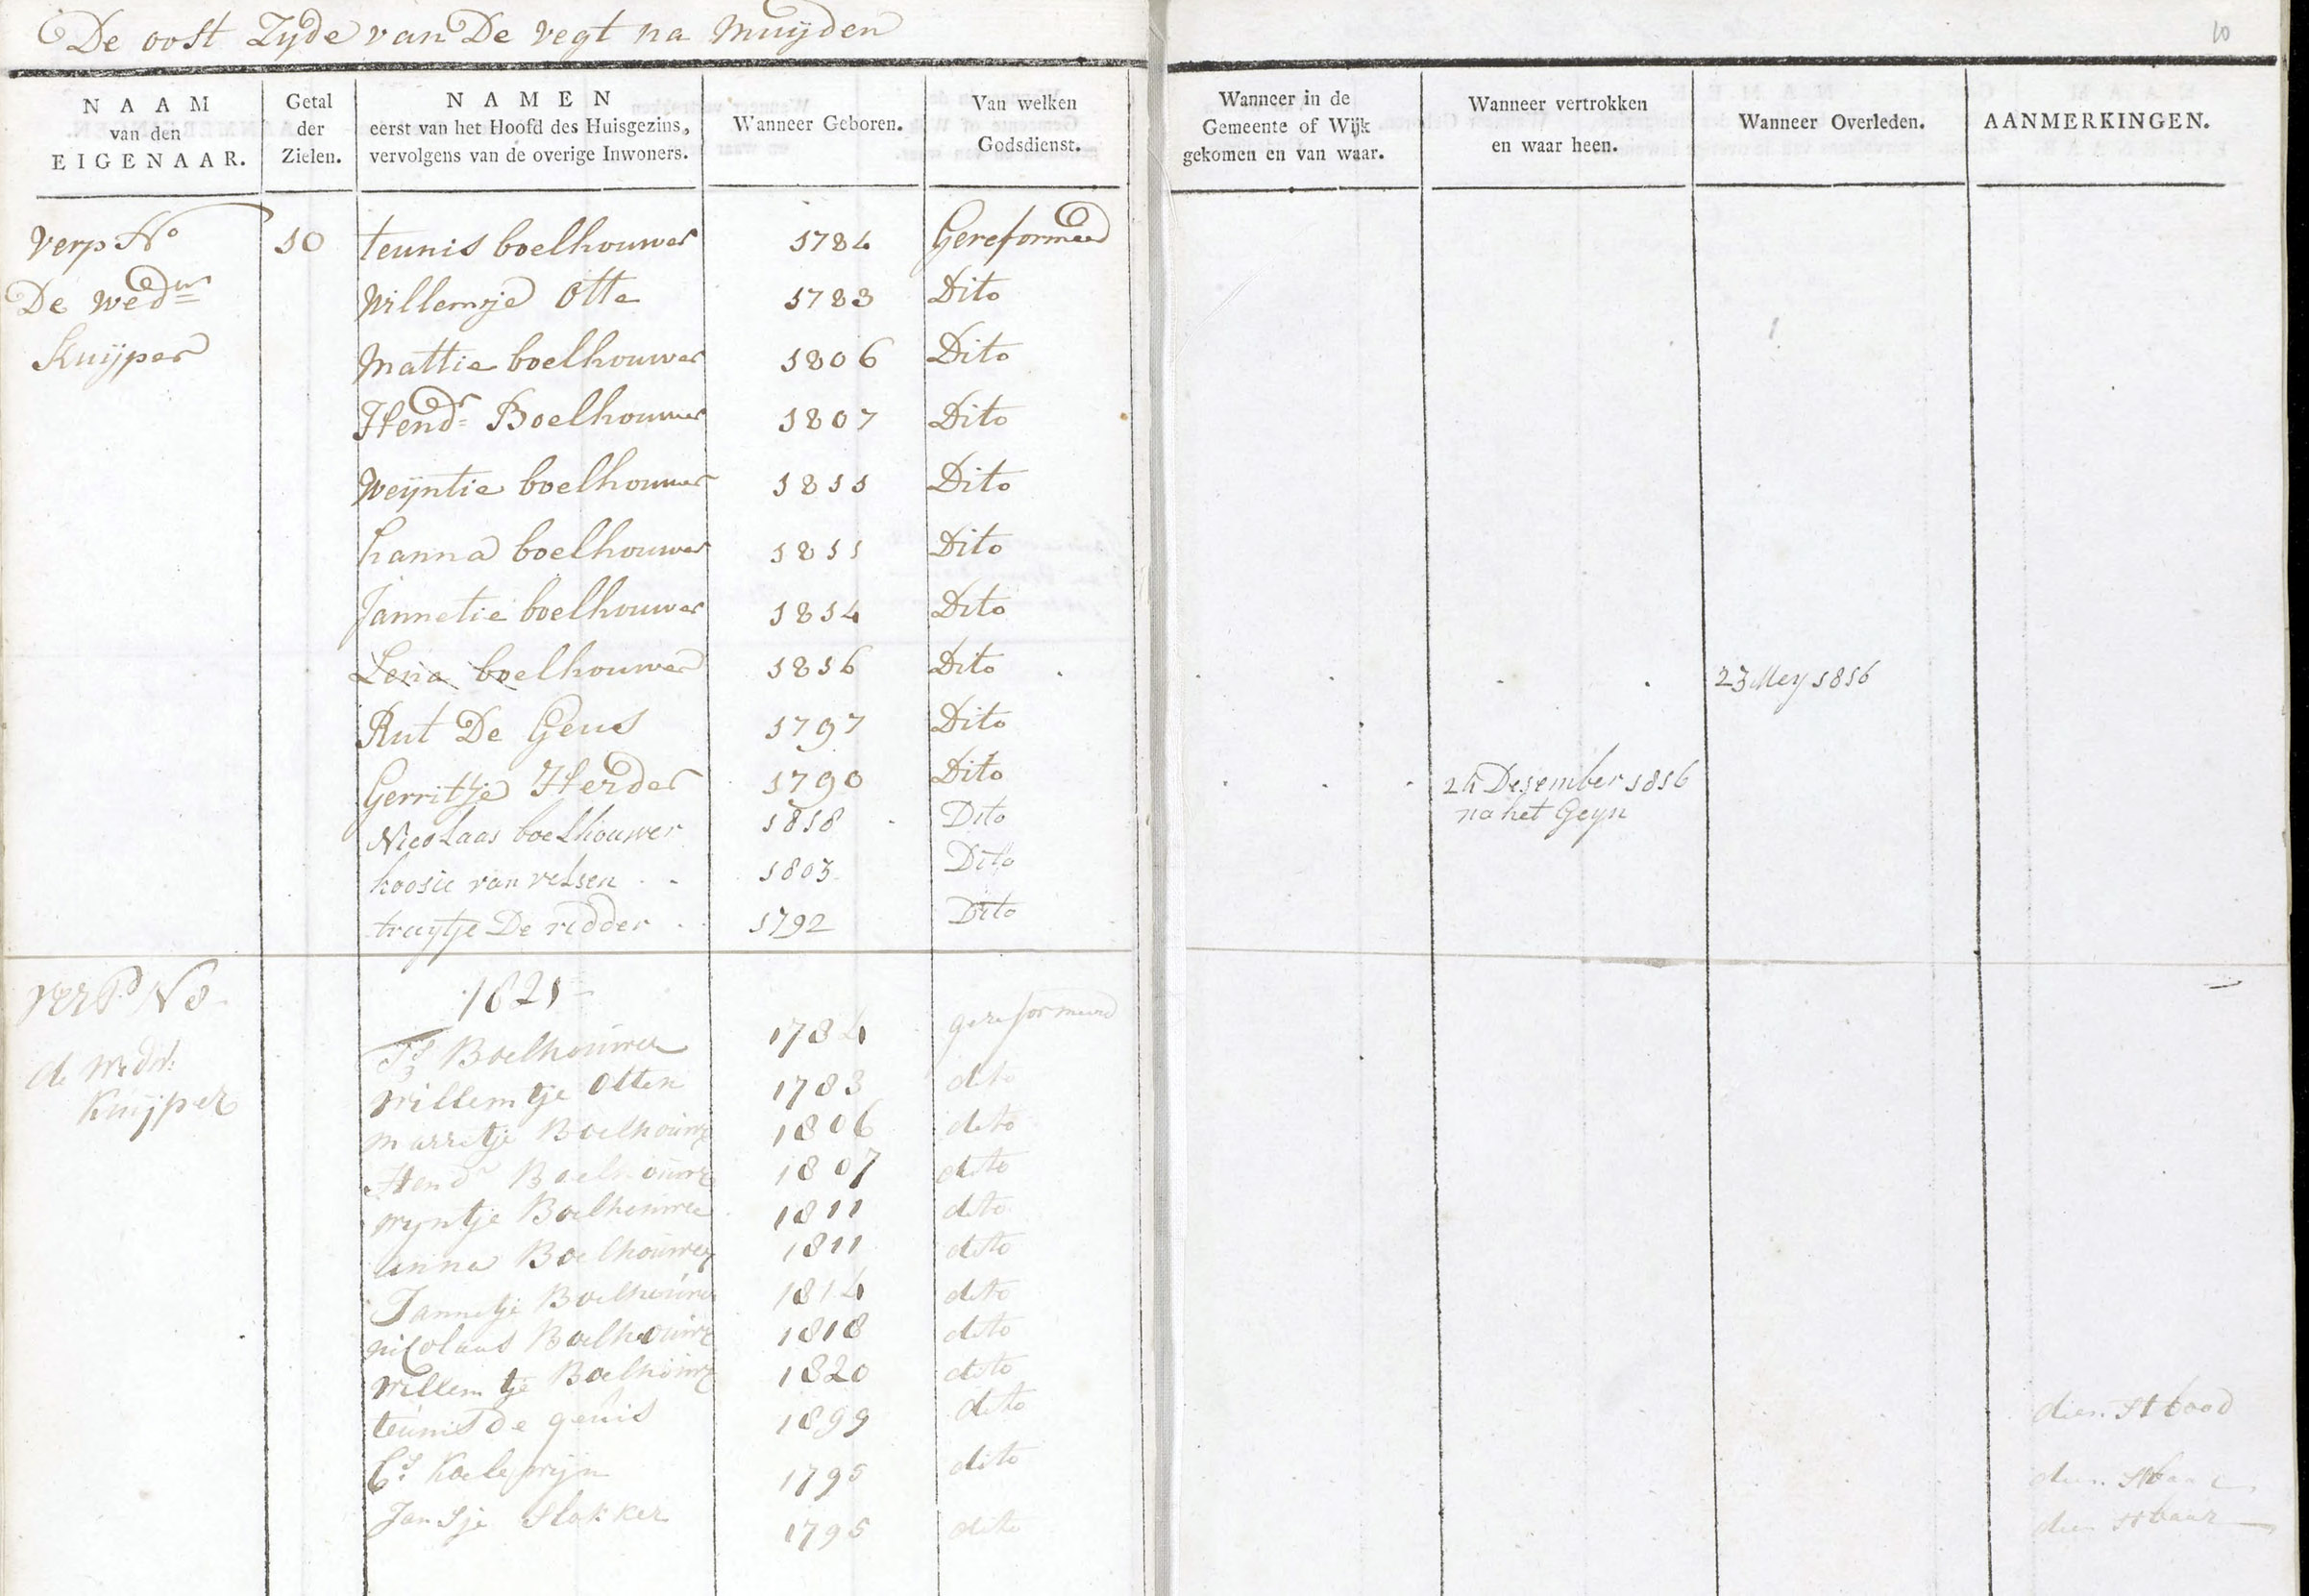 De oost Zyde van De vegt na Muyden
10
NAAM van den EIGENAAR.
Getal der Zielen.
NAMEN eerst van het Hoofd des Huisgezins, vervolgens van de overige Inwoners.
Wanneer Geboren.
Van welken Godsdienst.
Wanneer in de Gemeente of Wijk gekomen en van waar.
Wanneer vertrokken en waar heen.
Wanneer Overleden.
AANMERKINGEN.
Verp No 10 teunis boelhouwer 1784 Gereformeerd
De wedw Willemje Otte 1783 Dito
Kuijper Mattie boelhouwer 1806 Dito
Hendr Boelhouwer 1807 Dito
Weijntie boelhouwer 1811 Dito
hanna boelhouwer 1811 Dito
Jannetie boelhouwer 1814 Dito
Lena boelhouwer 1816 Dito 23 Mey 1816
Rut De Geus 1797 Dito
Gerritje Herder 1790 Dito 24 Desember 1816
na het Geyn
Nicolaas boelhouwer 1818 Dito
koosie van velsen 1803 Dito
truytje De ridder 1792 Dito
verpd No 1821
Ts Boelhouwer 1784 gereformeerd
de wedw. Kuijper
willemtje Otten 1783 dito
marretje Boelhouwer 1806 dito
Hendr Boelhouwer 1807 dito
wyntje Boelhouwer 1811 dito
anna Boelhouwer 1811 dito
Jannetje Boelhouwer 1814 dito
nicolaas Boelhouwer 1818 dito
willemtje Boelhouwer 1820 dito
teunis de geuis 1899 dito dienstbood
Cs Koelewijn 1795 dito dienstbaar
Jansje Slokker 1795 dito dienstbaar